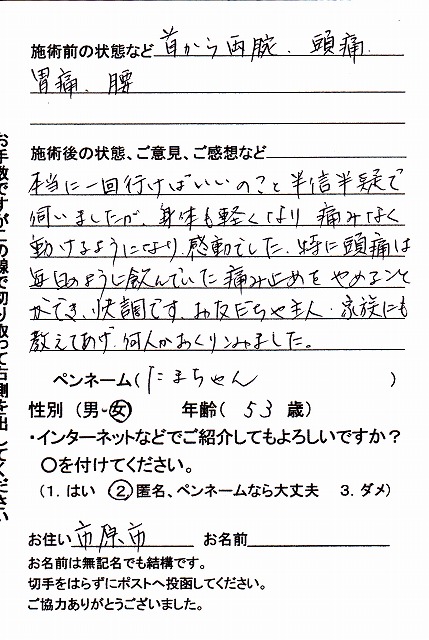 施術前の状態など 首から両腕、頭痛、
胃痛、腰
施術後の状態、ご意見、ご感想など
本当に一回行けばいいのこと 半信半疑で
伺いましたが、身体も軽くなり 痛みなく
動けるようになり、感動でした。特に頭痛は
毎日のように飲んでいた痛み止めを やめること
ができ、快調です。お友だちや主人、家族にも
教えてあげ、何人かおくりこみました。
ペンネーム（たまちゃん）
性別（男・女） 年齢（53 歳）
・インターネットなどでご紹介してもよろしいですか？
○を付けてください。
（1. はい ②匿名、ペンネームなら大丈夫 3. ダメ）
お住い 市原市 お名前
お名前は無記名でも結構です。
切手をはらずにポストへ投函してください。
ご協力ありがとうございました。
お手数ですがこの線で切り取って右側を出してください